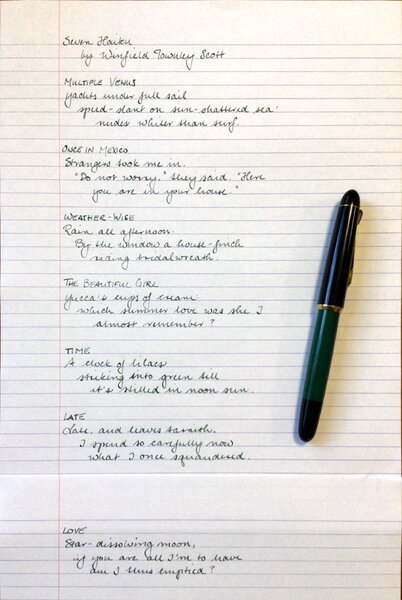 Seven Haiku
by Winfield Townley Scott
MULTIPLE VENUS
Yachts under full sail
speed-slant on sun-shattered sea:
nudes whiter than surf.
ONCE IN MEXICO
Strangers took me in.
"Do not worry," they said. "Here
you are in your house."
WEATHER-WISE
Rain all afternoon.
By the window a house-finch
riding bridalwreath.
THE BEAUTIFUL GIRL
Yucca's cups of cream:
which summer love was she I
almost remember?
TIME
A clock of lilacs
striking into green till
it's stilled in noon sun.
LATE
Late, and leaves
I spend so carefully now
what I once squandered.
LOVE
Star-dissolving moon,
if you are all I'm to have
am I thus emptied?